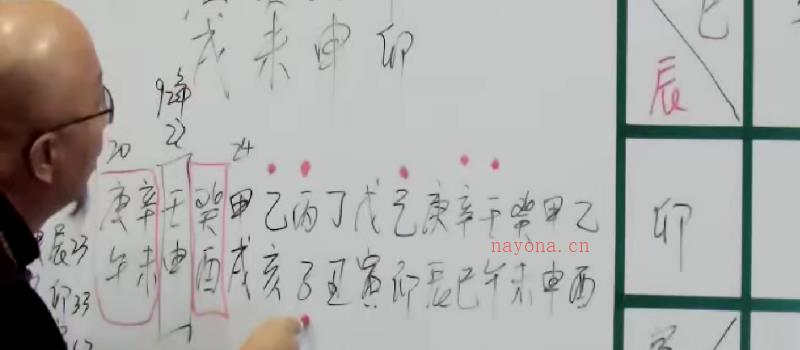 戌未申卯
巳
辰
92年
22
20
24
庚辛壬癸甲乙丙丁戊己庚辛壬癸甲乙
午未申酉戌亥子丑寅卯辰巳午未申酉
nayona.cn
辰23
卯33
卯